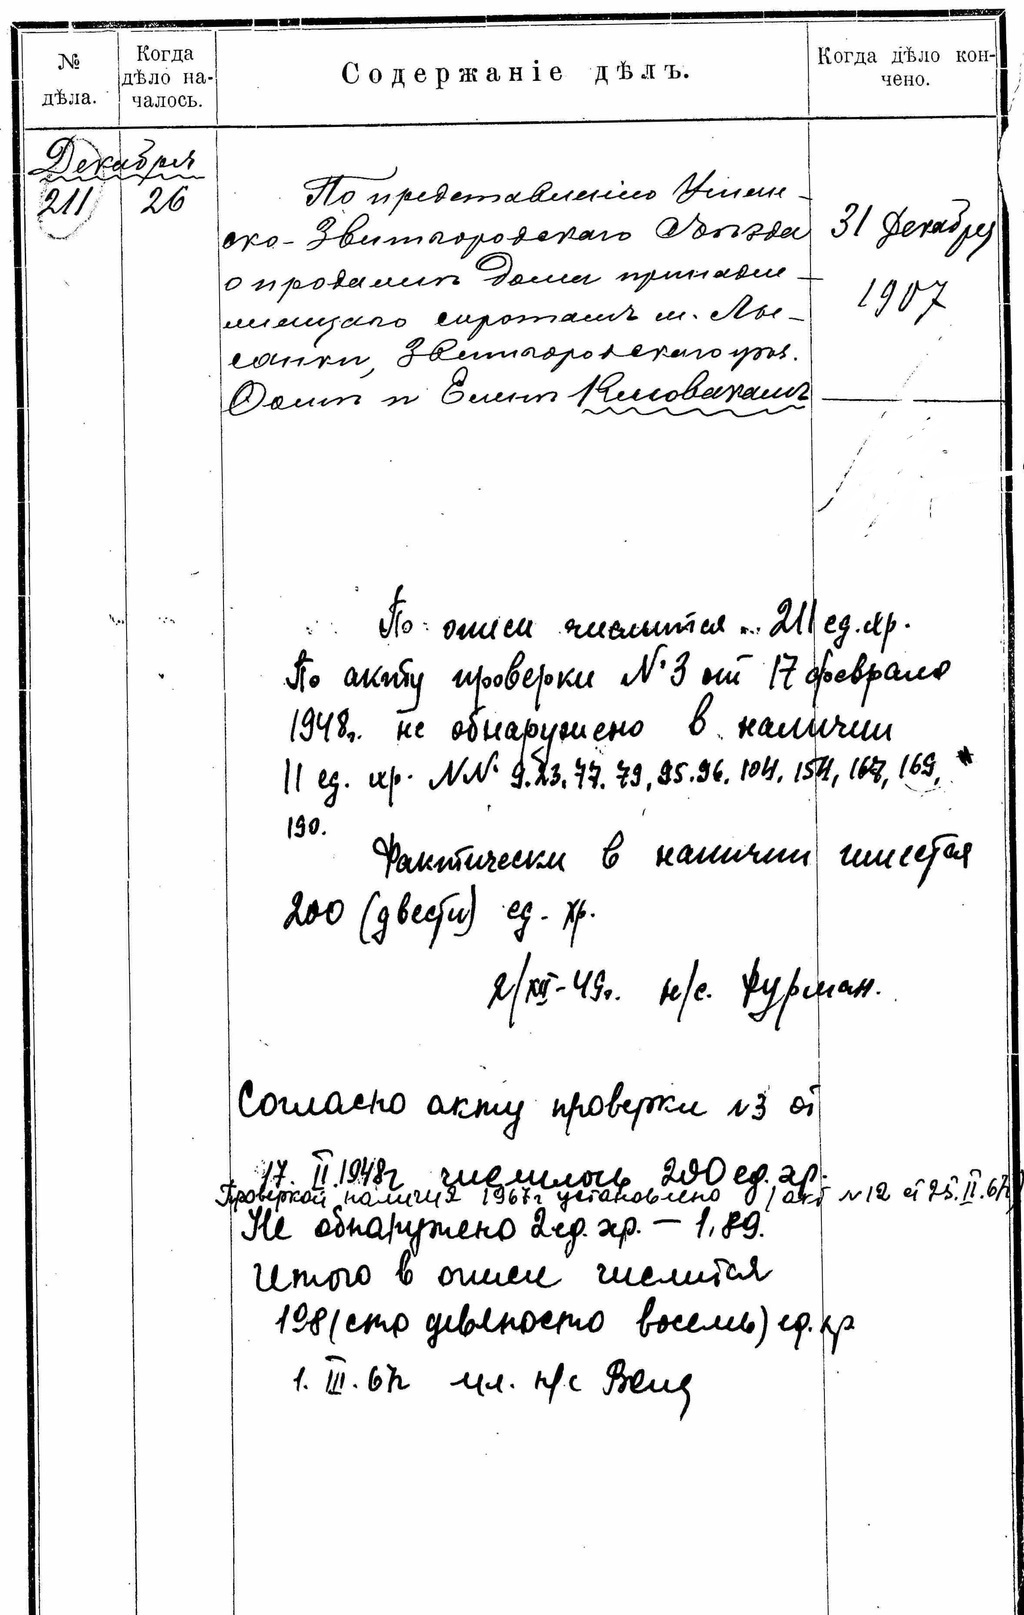 № дѣла.
Когда дѣло на-
чалось.
Содержаніе дѣлъ.
Когда дѣло кон-
чено.
Декабря
211 26
По представленію Уман-
ско-Звенигородскаго Съѣзда
о продажѣ дома принадле-
жащаго сиротамъ м. Лы-
сянки, Звенигородскаго уѣз.
и Еленѣ
31 Декабря
1907
По описи числится 211 ед. хр.
По акту проверки № 3 от 17 февраля
1948г. не обнаружено в наличии
11 ед. хр. №№ 9. 23. 77. 79, 95. 96. 104, 154, 167, 169,
190.
Фактически в наличии имеется
200 (двести) ед. хр.
2/XII-49г. н/с. Фурман.
Согласно акту проверки №3 от
17. II. 1948г числилось 200 ед. хр.
Проверкой наличия 1967г установлено (акт №12 от 25. II. 67г)
Не обнаружено 2 ед. хр. – 1, 89.
Итого в описи числится
198 (сто девяносто восемь) ед. хр
1. III. 67г мл. н/с